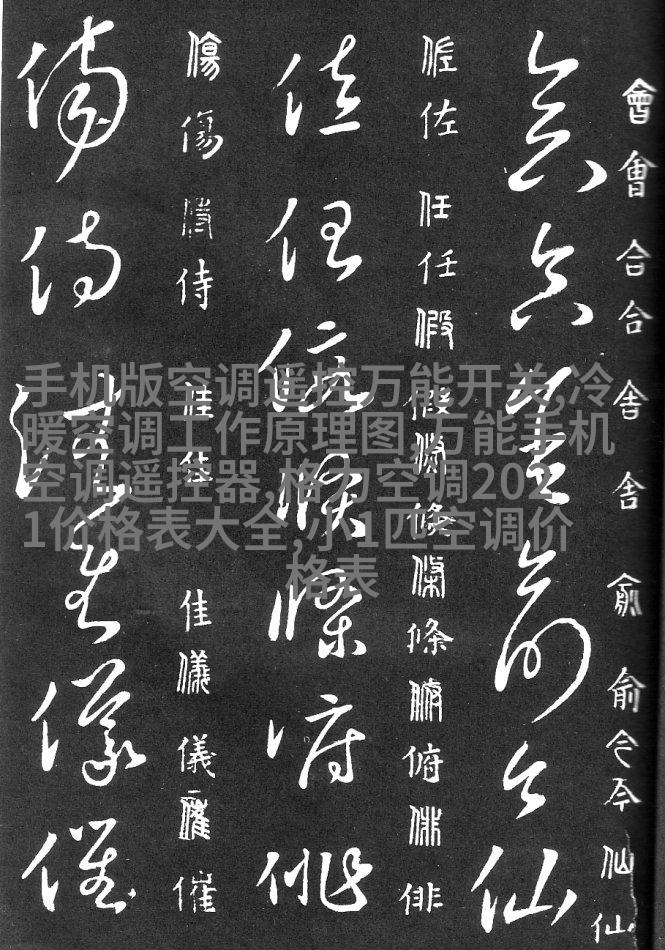 會會合合舍舍俞俞仙仙
會合舍俞仙
佐佐任任假假條條俯俯俳俳
佐任假條俯俳
傷傷侍侍佳佳佳儀儀催催
傷侍儀催
手机版空调遥控万能开关,冷
暖空调工作原理图,万能手机
空调遥控器,格力空调202
1价格表大全,小1匹空调价
格表